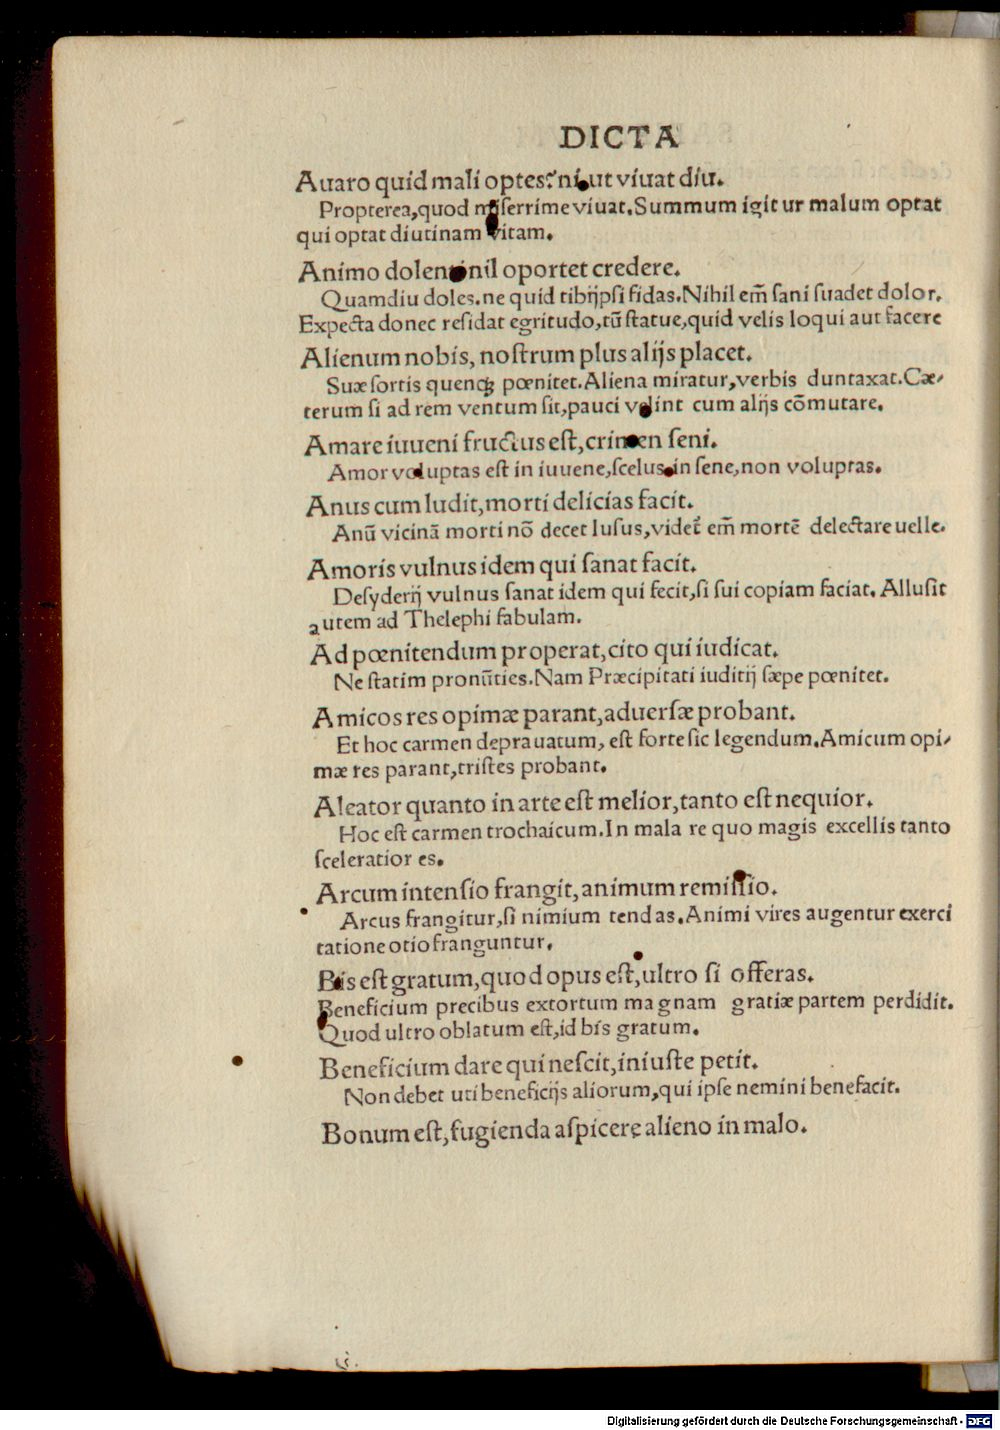 DICTA
Auaro quid mali optes? ni ut viuat diu.
Propterea, quod miſerrime viuat. Summum igitur malum optat
qui optat diutinam vitam.
Animo dolenti nil oportet credere.
Quamdiu doles. ne quid tibijpſi fidas. Nihil em̃ ſani ſuadet dolor.
Expecta donec reſidat egritudo, tũ ſtatue, quid velis loqui aut facere
Alienum nobis, noſtrum plus alijs placet.
Suæ ſortis quenqꝫ pœnitet. Aliena miratur, verbis duntaxat. Cæ-
terum ſi ad rem ventum ſit, pauci velint cum alijs cõmutare.
Amare iuueni fructus eſt, crimen ſeni.
Amor voluptas eſt in iuuene, ſcelus in ſene, non voluptas.
Anus cum ludit, morti delicias facit.
Anũ vicinã morti nõ decet luſus, videt̃ em̃ mortẽ delectare uelle.
Amoris vulnus idem qui ſanat facit.
Deſyderij vulnus ſanat idem qui fecit, ſi ſui copiam faciat. Alluſit
autem ad Thelephi fabulam.
Ad pœnitendum properat, cito qui iudicat.
Ne ſtatim pronũties. Nam Præcipitati iuditij ſæpe pœnitet.
Amicos res opimæ parant, aduerſæ probant.
Et hoc carmen deprauatum, eſt forte ſic legendum. Amicum opi-
mæ res parant, triſtes probant.
Aleator quanto in arte eſt melior, tanto eſt nequior.
Hoc eſt carmen trochaicum. In mala re quo magis excellis tanto
ſceleratior es.
Arcum intenſio frangit, animum remiſſio.
Arcus frangitur, ſi nimium tendas. Animi vires augentur exerci
tatione otio franguntur.
Bis eſt gratum, quod opus eſt, ultro ſi offeras.
Beneficium precibus extortum magnam gratiæ partem perdidit.
Quod ultro oblatum eſt, id bis gratum.
Beneficium dare qui neſcit, iniuſte petit.
Non debet uti beneficijs aliorum, qui ipſe nemini benefacit.
Bonum eſt, fugienda aſpicere alieno in malo.
Digitalisierung gefördert durch die Deutsche Forschungsgemeinschaft - DFG